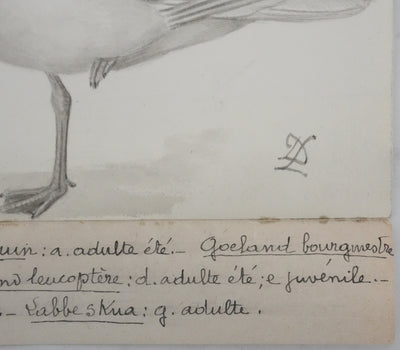 uin : a. adulte été. – Goeland bourgmestre
nd leucoptère : d. adulte été ; e juvénile. –
. – Labbe sKua : g. adulte .